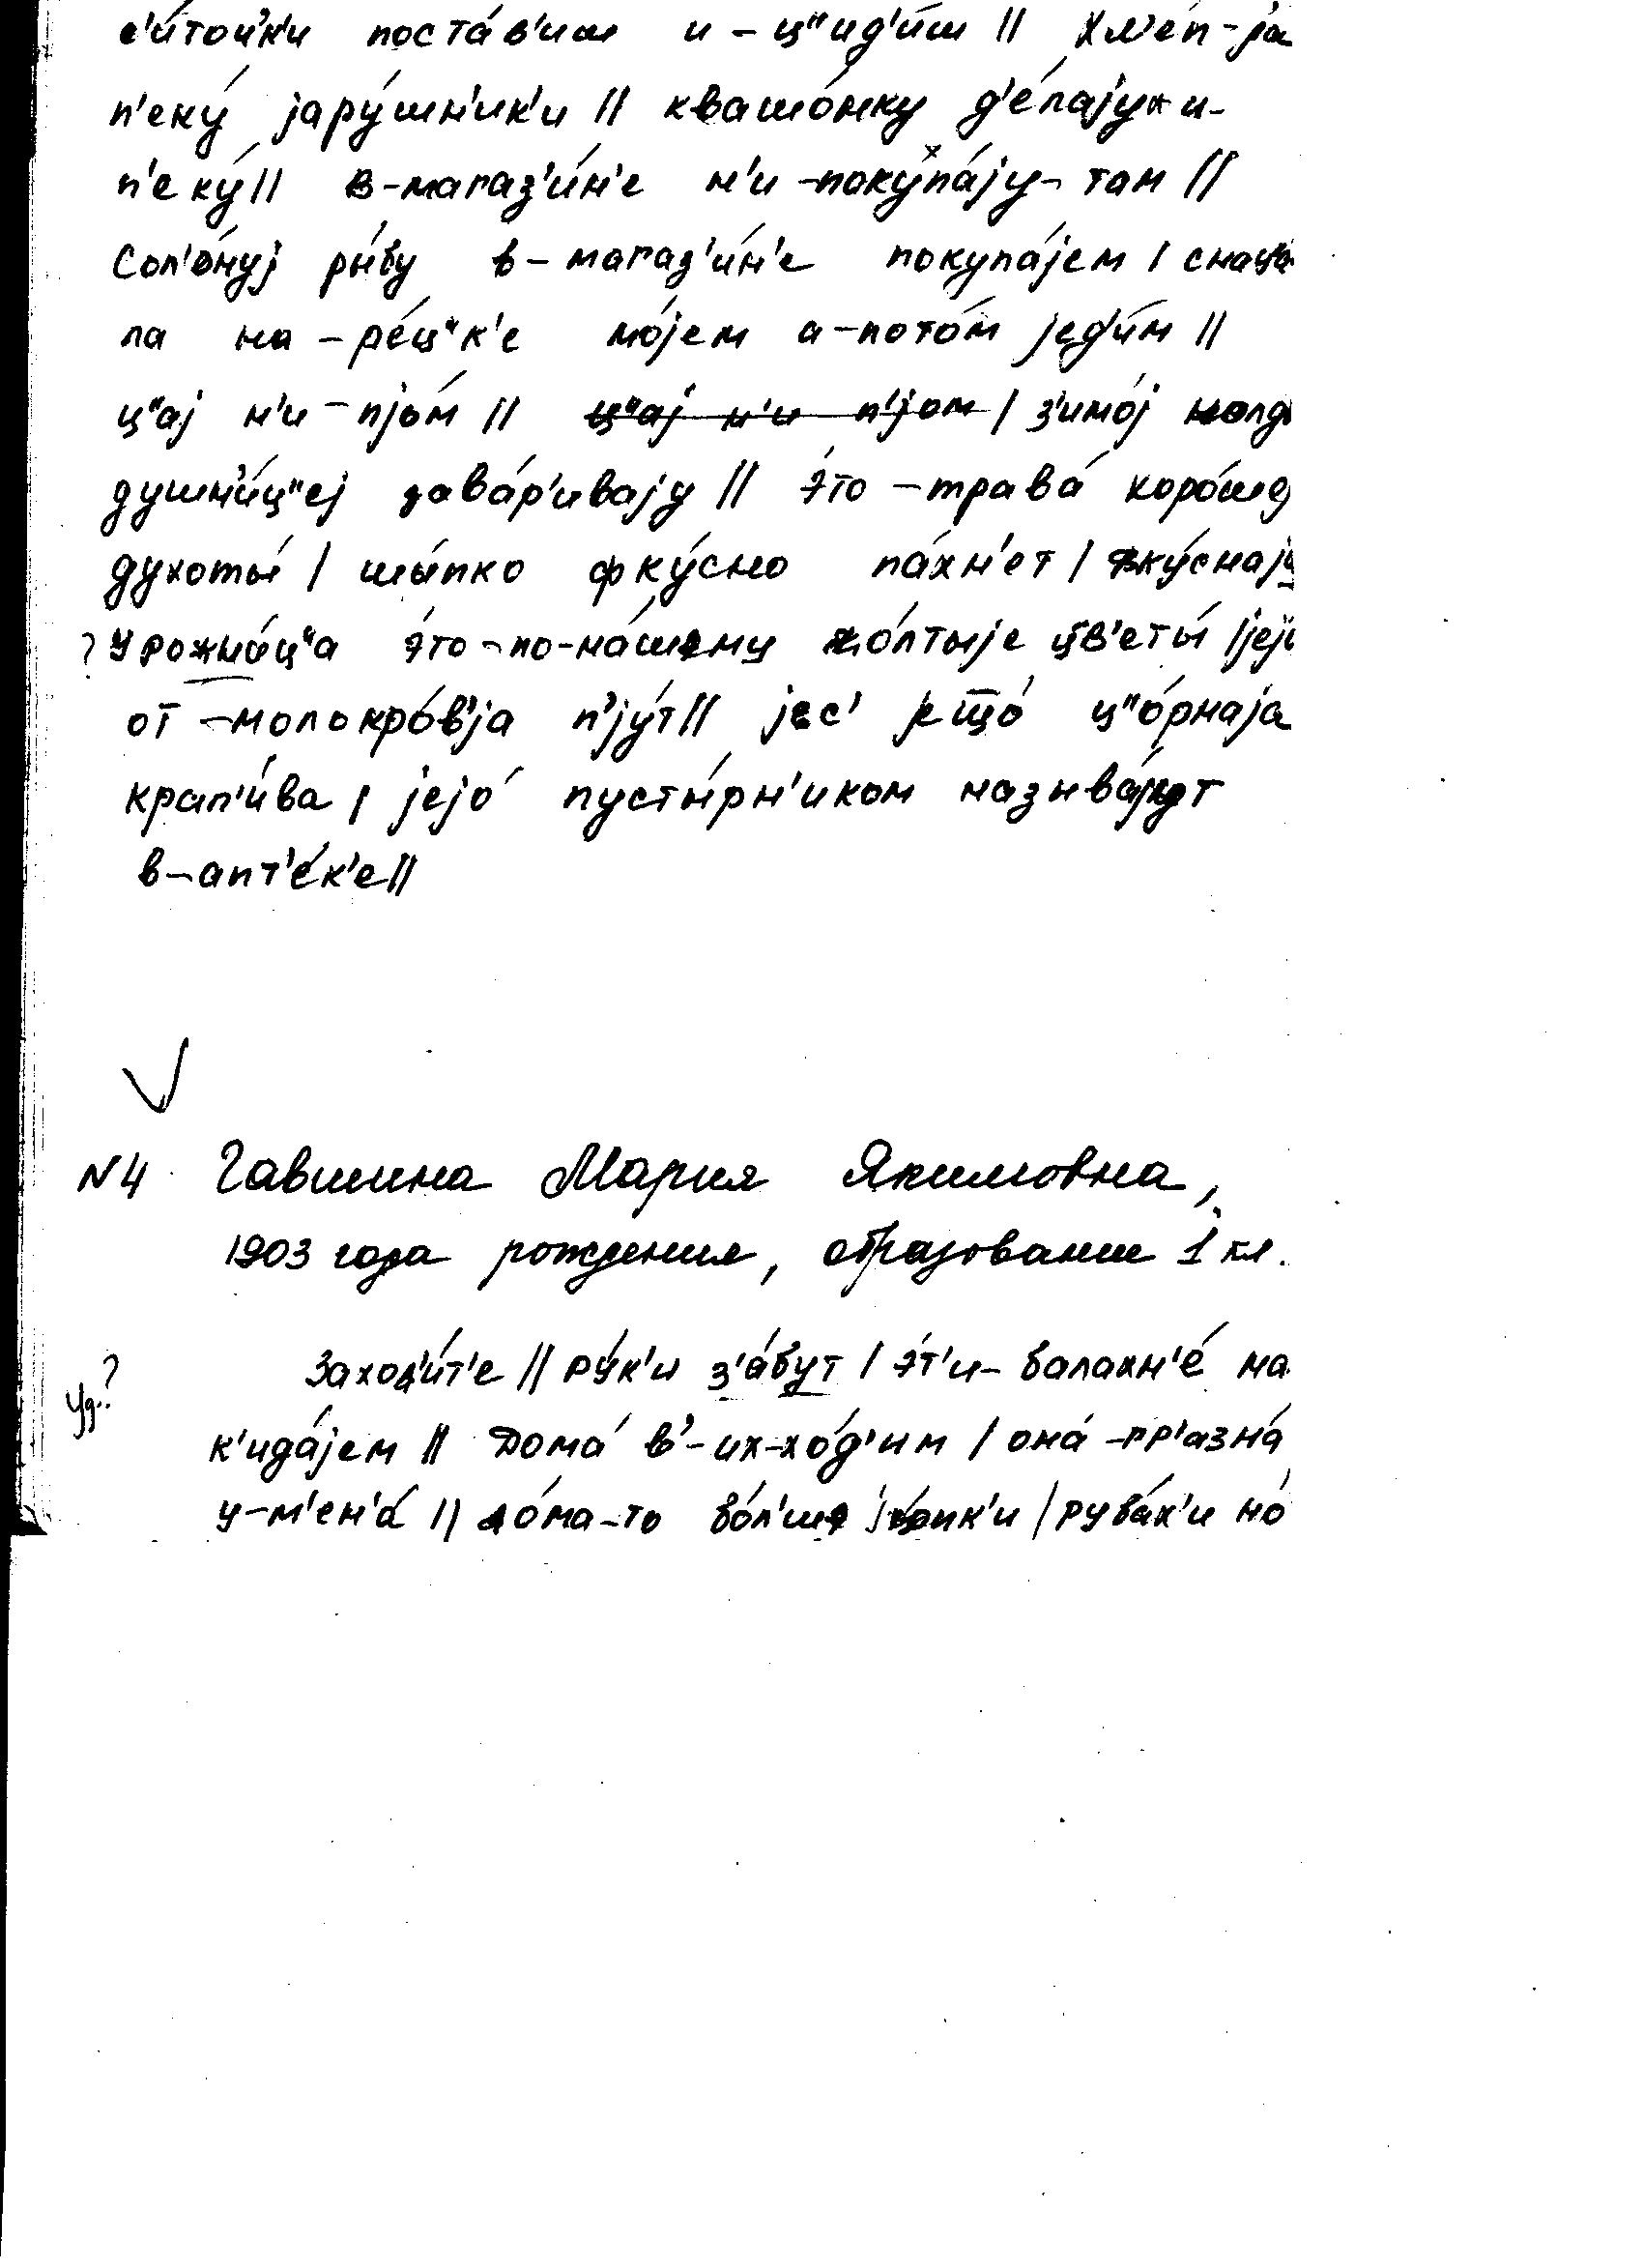 с'и́точ'к'и поста́в'иш и–ц"ид'и́ш || хл'е́п–jа
п'еку́ jару́шн'ик'и || квашо́нку д'е́лаjу и–
п'еку́ || в–магаз'и́н'е н'и–покупа́jу–там ||
Сол'о́нуj ры́бу в–магаз'и́н'е покупа́jем | снац"а
ла на–ре́ц"к'е мо́jем а–пото́м jед'и́м ||
ц"аj н'и–пjо́м || ц"аj н'и п'jом | з'имо́j
душн'и́ц"еj зава́р'иваjу || э́то–трава́ хоро́шо
духоты́ | шы́пко фку́сно па́хн'ет | вку́снаjа
? Урожни́ц"а э́то–по–на́шему жо́лтыjе цв'еты́ | jеjо
от–молокро́в'jа п'jу́т || jес' jещо́ ц"о́рнаjа
крап'и́ва | jеjо́ пусты́рн'иком называ́jут
в–апт'е́к'е ||
N4 Гавшина Мария Якимовна,
1903 года рождения, образование 1 кл.
Заход'и́т'е || ру́к'и з'а́бут | э́т'и–балахн'е́ на
Уд.?
к'ида́jем || Дома́ в'–их–хо́д'им | она́–гр'азна́
у–м'ен'а́ || до́ма–то бо́л'ше | руба́х'и но́